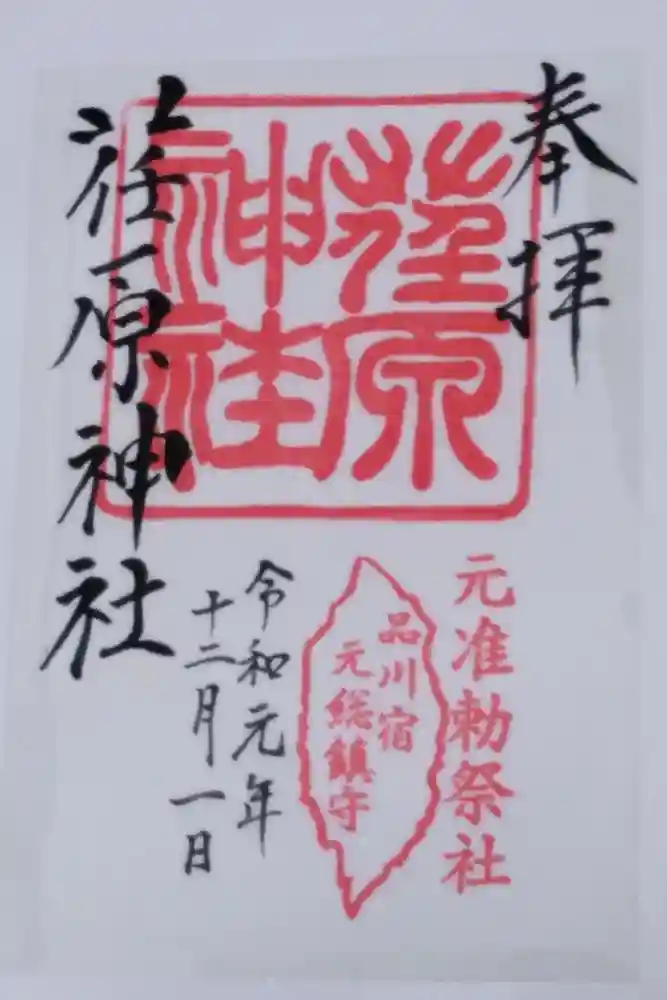 奉拝
荏原
神社
元准勅祭社
品川宿
元総鎮守
令和元年
十二月一日
荏原神社